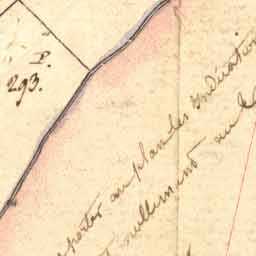 P.
293.
porter au plan les Indication
nullement au